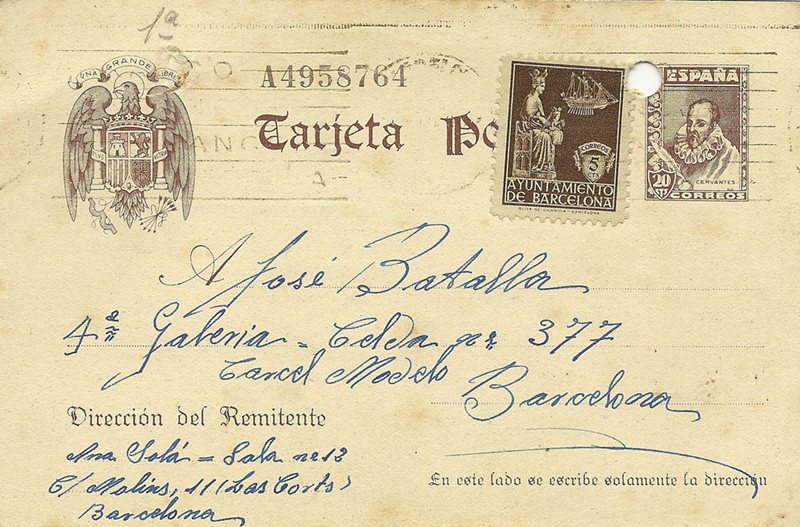 1ª
UNA GRANDE LIBRE
A4958764
Tarjeta Po
CORREOS
5
CTS
AYUNTAMIENTO
DE BARCELONA
ESPAÑA
CERVANTES
20
CTS
CORREOS
A José Batalla
4ª Galeria = Celda nº 377
Carcel Modelo
Barcelona
Dirección del Remitente
Ana Solá = Sala nº 12
C/ Molins, 11 (Las Corts)
Barcelona
En este lado se escribe solamente la dirección